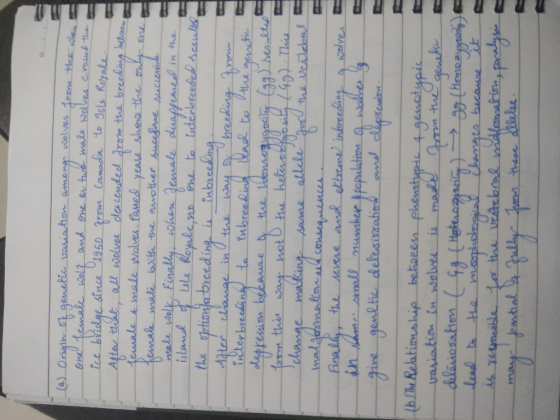 (a) Origin of genetic variation among wolves from the
one female wolf and one or two male wolves crossed the
ice bridge since 1950 from Canada to Isle Royale.
After that, all wolves descended from the breeding between
female & male wolves. Passed years show the only one
female mate with the another successive
male wolf. Finally, when female disappeared in the
island of Isle Royale, no one to interbreed results
the option of breeding is inbreeding.
After change in the way of breeding from
interbreed to inbreeding lead to the genetic
depression because of the Homozygosity (gg) results
from this way not the heterozygosity (Gg). This
change making same allele for the vertebral
malformation as consequences.
Finally, the severe and extreme inbreeding of wolves
in small number population of wolves
give genetic deterioration and depression.
(b) The Relationship between phenotypic & genotypic
variation in wolves is made from the genetic
deterioration (Gg (Heterozygosity) → gg (Homozygosity)
lead to the morphological changes because it
is responsible for the vertebral malformation, paralysis
may partial & fully from these alleles.